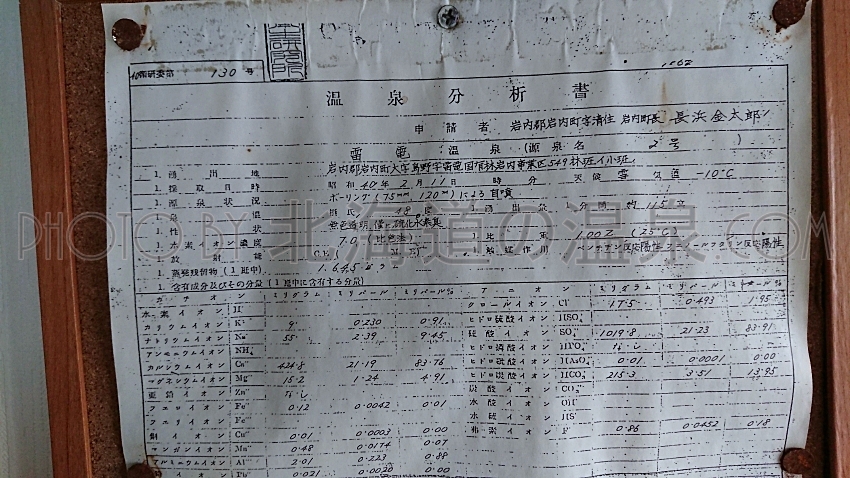 130号
温泉分析書
申請者 岩内郡岩内町字清住 岩内町長 長浜金太郎
雷電温泉（源泉名 2号 ）
1. 湧出地 岩内郡岩内町大字 野字雷電国有林岩内事業区549林班イ小班
1. 採取日時 昭和40年2月11日 時 分 天候 雪 気温 -10℃
1. 源泉状況 ボーリング（75mm 120m）による自噴
1. 泉温 摂氏 48度 湧出量 1分間 約115立
1. 性状 無色透明、僅に硫化水素臭 1. 比重 1.002（25℃）
1. 水素イオン濃度 7.0（比色法） 接触作用 ベンチヂン反応陽性 フェノールフタリン反応陽性
1. 放射能
1. 蒸発残留物（1竓中） 1.645
1. 含有成分及びその分量（1竓中に含有する分量）
カチオン ミリグラム ミリバール ミリバール% アニオン ミリグラム ミリバール ミリバール%
水素イオン H クロールイオン Cl 17.5 0.493 1.95
カリウムイオン K 9. 0.230 0.91 ヒドロ硫酸イオン HSO₄
ナトリウムイオン Na 55. 2.39 9.45 硫酸イオン SO₄ 1019.8 21.23 83.91
アンモニウムイオン NH₄ ヒドロ燐酸イオン HPO₄ なし
カルシウムイオン Ca 424.8 21.19 83.76 ヒドロ砒酸イオン HAsO₄ 0.01 0.0001 0.00
マグネシウムイオン Mg 15.2 1.24 4.91 ヒドロ炭酸イオン HCO₃ 215.3 3.51 13.95
亜鉛イオン Zn なし 炭酸イオン CO₃
フェロイオン Fe 0.12 0.0042 0.01 水酸イオン OH
フェリイオン Fe 水硫イオン HS
銅イオン Cu 0.01 0.0003 0.00 弗素イオン F 0.86 0.0452 0.18
マンガンイオン Mn 0.48 0.0174 0.07
アルミニウムイオン Al 2.01 0.223 0.88
イオン Pb 0.021 0.0020 0.00
PHOTO BY 北海道の温泉.com